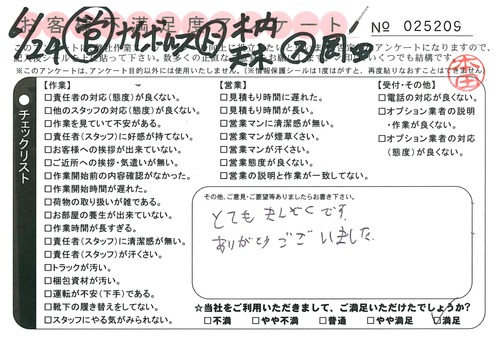 お客様満足度アンケート
№ 025209
6/4
※このアンケートは、アンケート目的以外には使用いたしません。(※情報保護シールは1度はがすと、再度貼りなおすことはできません)
チェックリスト
【作業】
□責任者の対応(態度)が良くない。
□他のスタッフの対応(態度)が良くない。
□作業を見ていて不安がある。
□責任者(スタッフ)に好感が持てない。
□お客様への挨拶が出来ていない。
□ご近所への挨拶・気遣いが無い。
□作業開始前の内容確認がなかった。
□作業開始時間が遅れた。
□荷物の取り扱いが雑である。
□お部屋の養生が出来ていない。
□作業時間が長すぎる。
□責任者(スタッフ)に清潔感が無い。
□責任者(スタッフ)が汗くさい。
□トラックが汚い。
□梱包資材が汚い。
□運転が不安(下手)である。
□靴下の履き替えをしてない。
□スタッフにやる気がみられない。
【営業】
□見積もり時間に遅れた。
□見積もり時間が長い。
□営業マンに清潔感が無い。
□営業マンが煙草くさい。
□営業マンが汗くさい。
□営業態度が良くない。
□営業の説明と作業が一致してない。
【受付・その他】
□電話の対応が良くない。
□オプション業者の説明
・作業が良くない。
□オプション業者の対応
(態度)が良くない。
その他、ご意見・ご要望等ありましたらお書き下さい。
とても まんぞくです。
ありがとう ございました。
☆当社をご利用いただきまして、ご満足いただけたでしょうか?
□不満 □やや不満 □普通 □やや満足 □満足